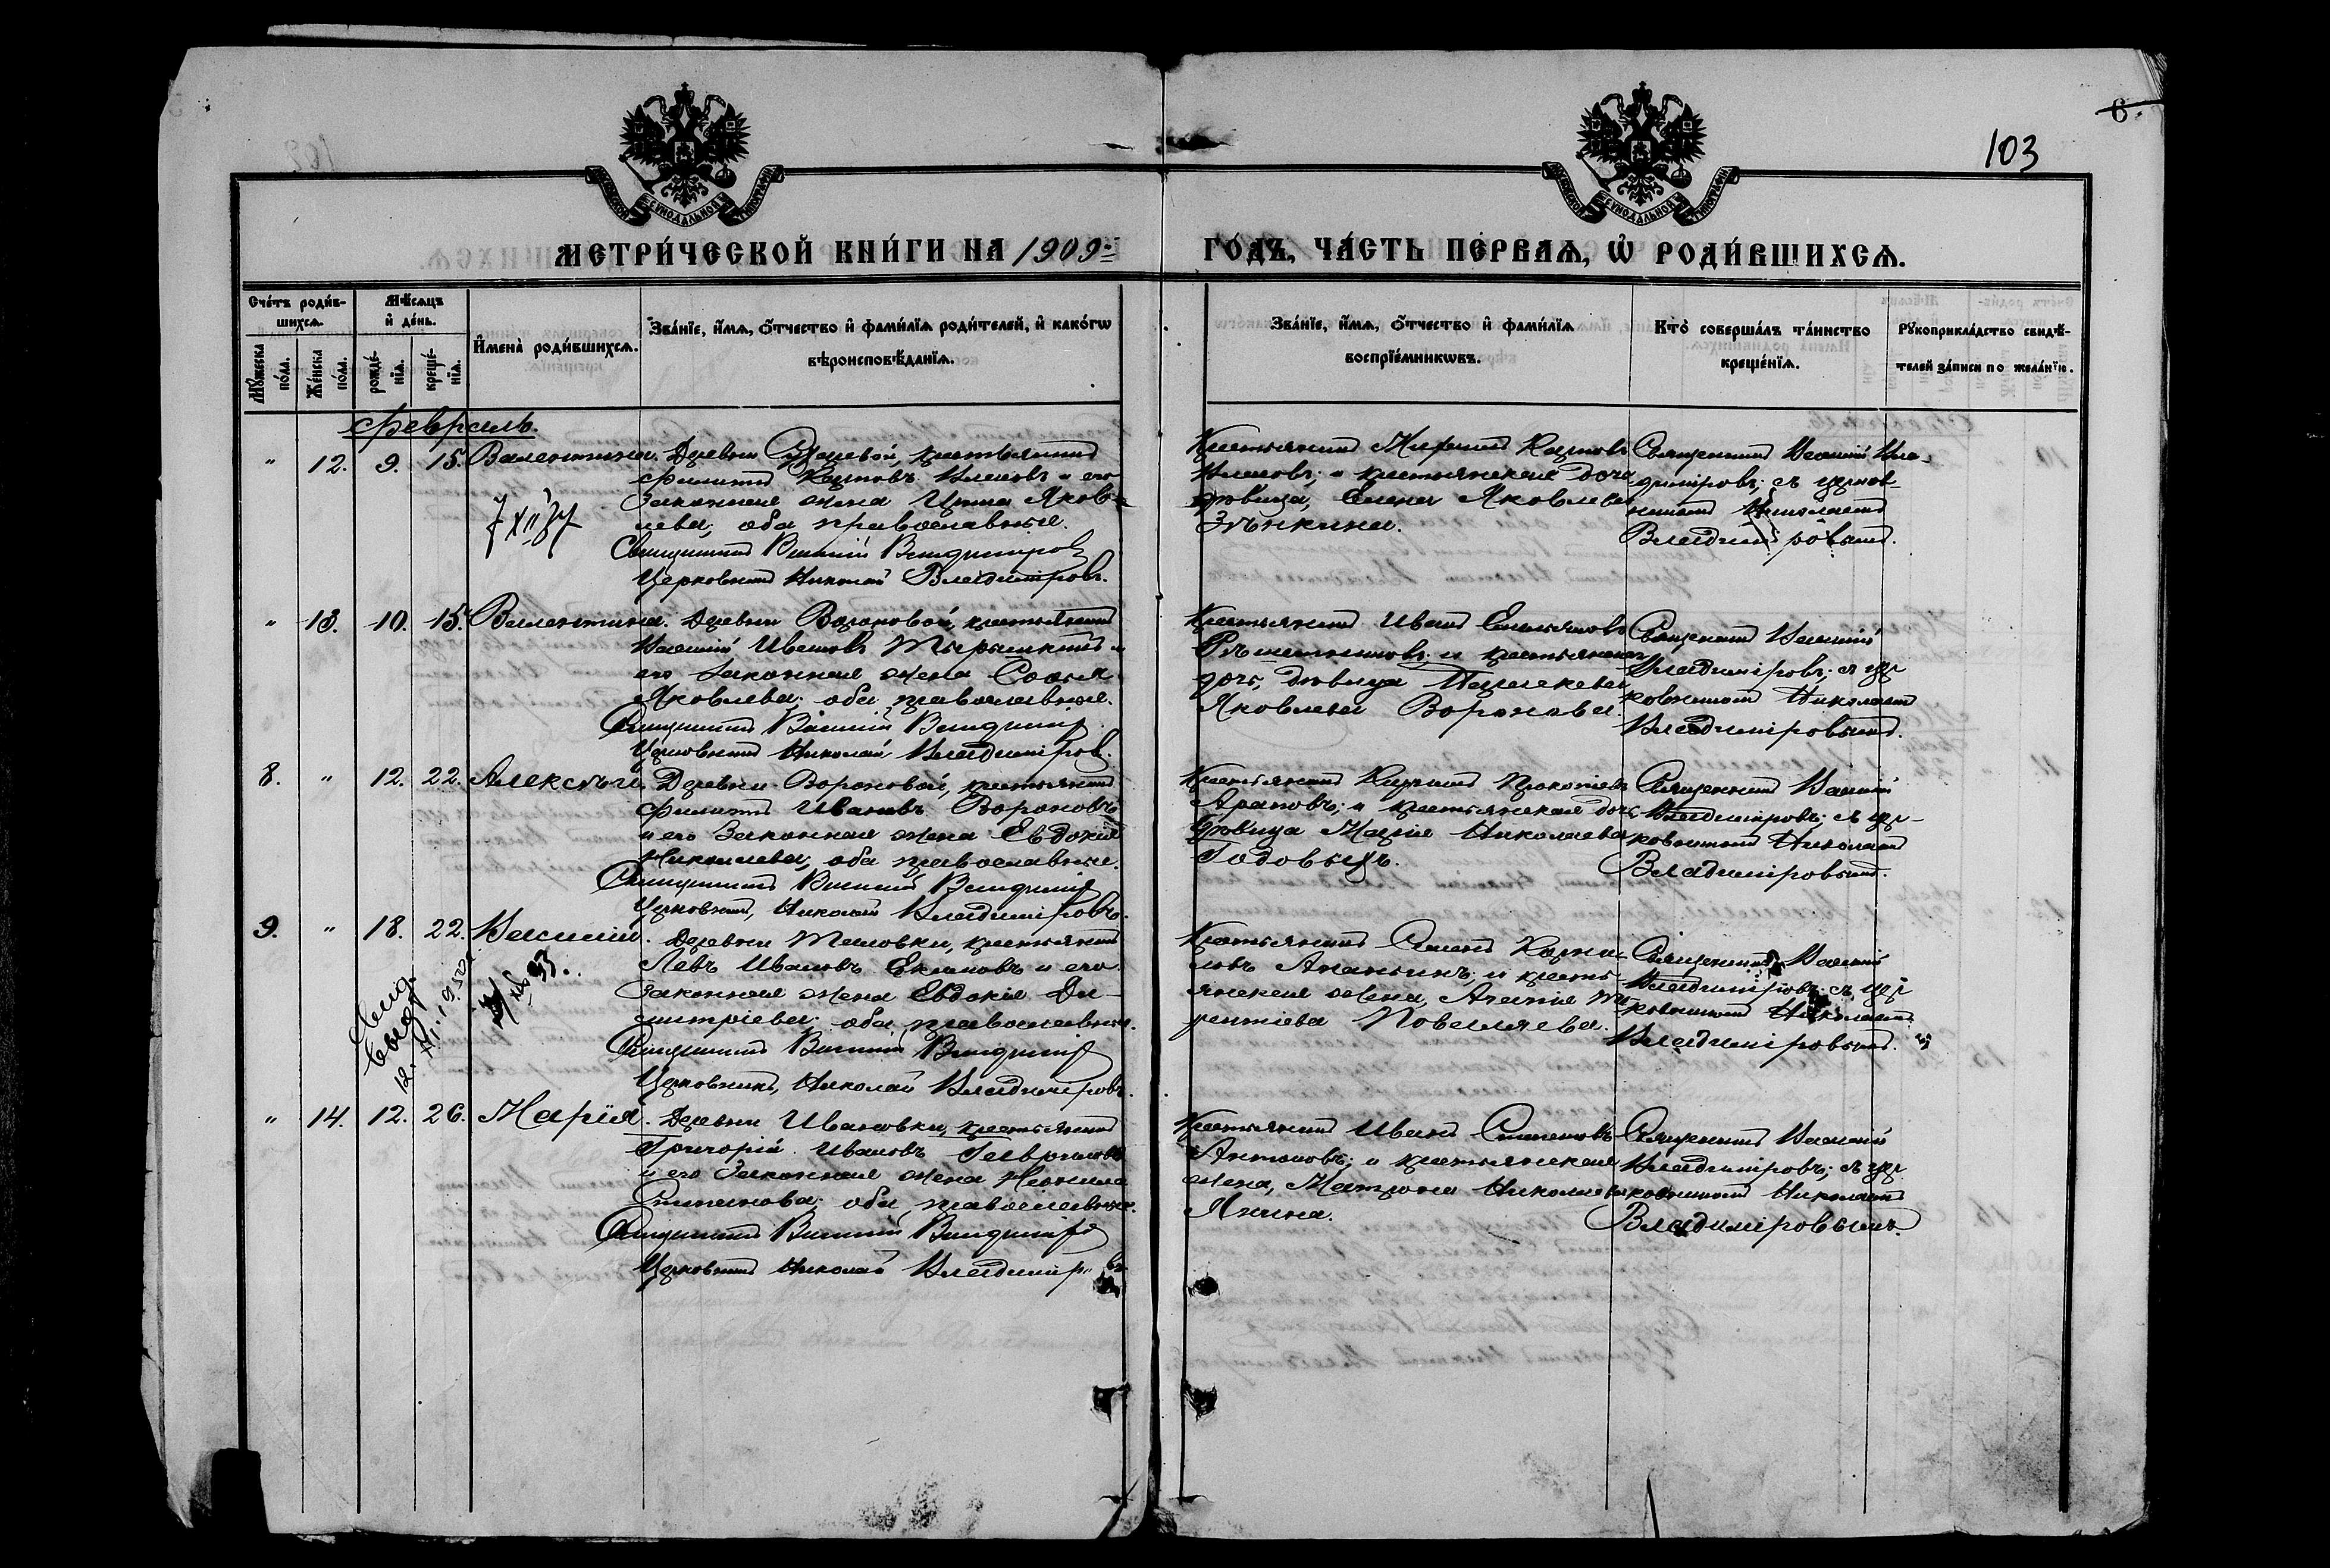 6.
103
МОСКОВСКОЙ СѴНОДАЛЬНОЙ ТИПОГРАФІИ
МОСКОВСКОЙ СѴНОДАЛЬНОЙ ТИПОГРАФІИ
МЕТРИ́ЧЕСКОЙ КНИ́ГИ НА 1909й
ГО́ДЪ, ЧА́СТЬ ПЕ́РВАѦ, Ѽ РОДИ́ВШИХСѦ.
Сче́тъ роди́в-
шихсѧ.
Мꙋ́жеска по́ла.
Же́нска по́ла.
Мѣ́сѧцъ
и҆ де́нь.
рожде́-нїѧ.
креще́-нїѧ.
И҆мена̀ роди́вшихсѧ.
Зва́нїе, и҆́мѧ, ѻ҆́тчество и҆ фами́лїѧ роди́телей, и҆ како́гѡ
вѣроисповѣ́данїѧ.
Зва́нїе, и҆́мѧ, ѻ҆́тчество и҆ фами́лїѧ
воспрїе́мникѡвъ.
Кто̀ соверша́лъ та́инство
креще́нїѧ.
Рꙋкоприкла́дство свидѣ́-
телей за́писи по жела́нїю.
Февраль.
" 12. 9. 15. Валентина. Деревни крестьянинъ
Филиппъ Карповъ и его
Законная жена Яков-
лева, оба православные.
Священникъ Василій Владиміров
Церковникъ Николай Владиміровъ.
Крестьянинъ Карповъ
и крестьянская дочь
дѣвица, Елена Яковлева
Зѣнкина.
Священникъ Василій Вла-
диміровъ; съ церков-
никомъ Николаемъ
Владиміровымъ.
" 13. 10. 15. Валентина. Деревни Вороновой, крестьянинъ
Василій Ивановъ и
его Законная жена Софья
Яковлева; оба православные.
Священникъ Василій Владиміров
Церковникъ Николай Владиміров.
Крестьянинъ Иванъ Емельяновъ
Рѣшетниковъ; и крестьянская
дочь, дѣвица Пелагея
Яковлева Воронова.
Священникъ Василій
Владиміровъ; съ цер
ковникомъ Николаемъ
Владиміровымъ.
8. " 12. 22. Алексѣй. Деревни Вороновой, крестьянинъ
Филиппъ Ивановъ Вороновъ
и его Законная жена Евдокія
Николаева; оба православные.
Священникъ Василій Владиміров
Церковникъ, Николай Владиміровъ.
Крестьянинъ Прокопіевъ
Араповъ; и крестьянская дочь,
дѣвица Марія Николаева
Годовыхъ.
Священникъ Василій
Владиміровъ; съ цер-
ковникомъ Николаемъ
Владиміровымъ.
9. " 18. 22. Василій. Деревни Таловки, крестьянинъ
Левъ Ивановъ Екимовъ и его
Законная жена Евдокія Ди-
митріева; оба православные.
Священникъ Василій Владиміров
Церковникъ, Николай Владиміровъ.
Крестьянинъ Семенъ Карпа-
Ананьинъ; и кресть-
янская жена, Агапія
Повеляева.
Священникъ Василій
Владиміровъ съ цер
ковникомъ Николаемъ
Владиміровымъ.
" 14. 12. 26. Марія. Деревни Ивановки, крестьянинъ
Григорій Ивановъ Гавриловъ
и его Законная жена Неонила
Степанова; оба православные.
Священникъ Василій Владиміров
Церковникъ Николай Владиміровъ
Крестьянинъ Иванъ Степановъ
Антоновъ; и крестьянская
жена, Матрона Николаева
Священникъ Василій
Владиміровъ; съ цер
ковникомъ Николаемъ
Владиміровымъ.